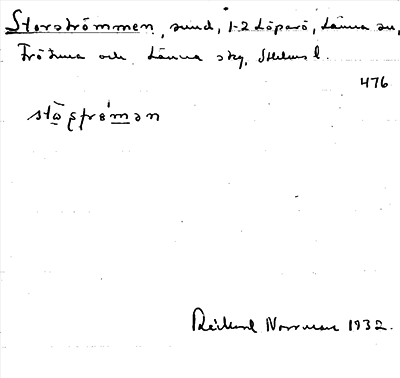 Storströmmen, sund, 1-2 Löparö, Länna sn,
Frötuna och Länna skg, Sthlms l.
476
Rickard Norrman 1932.